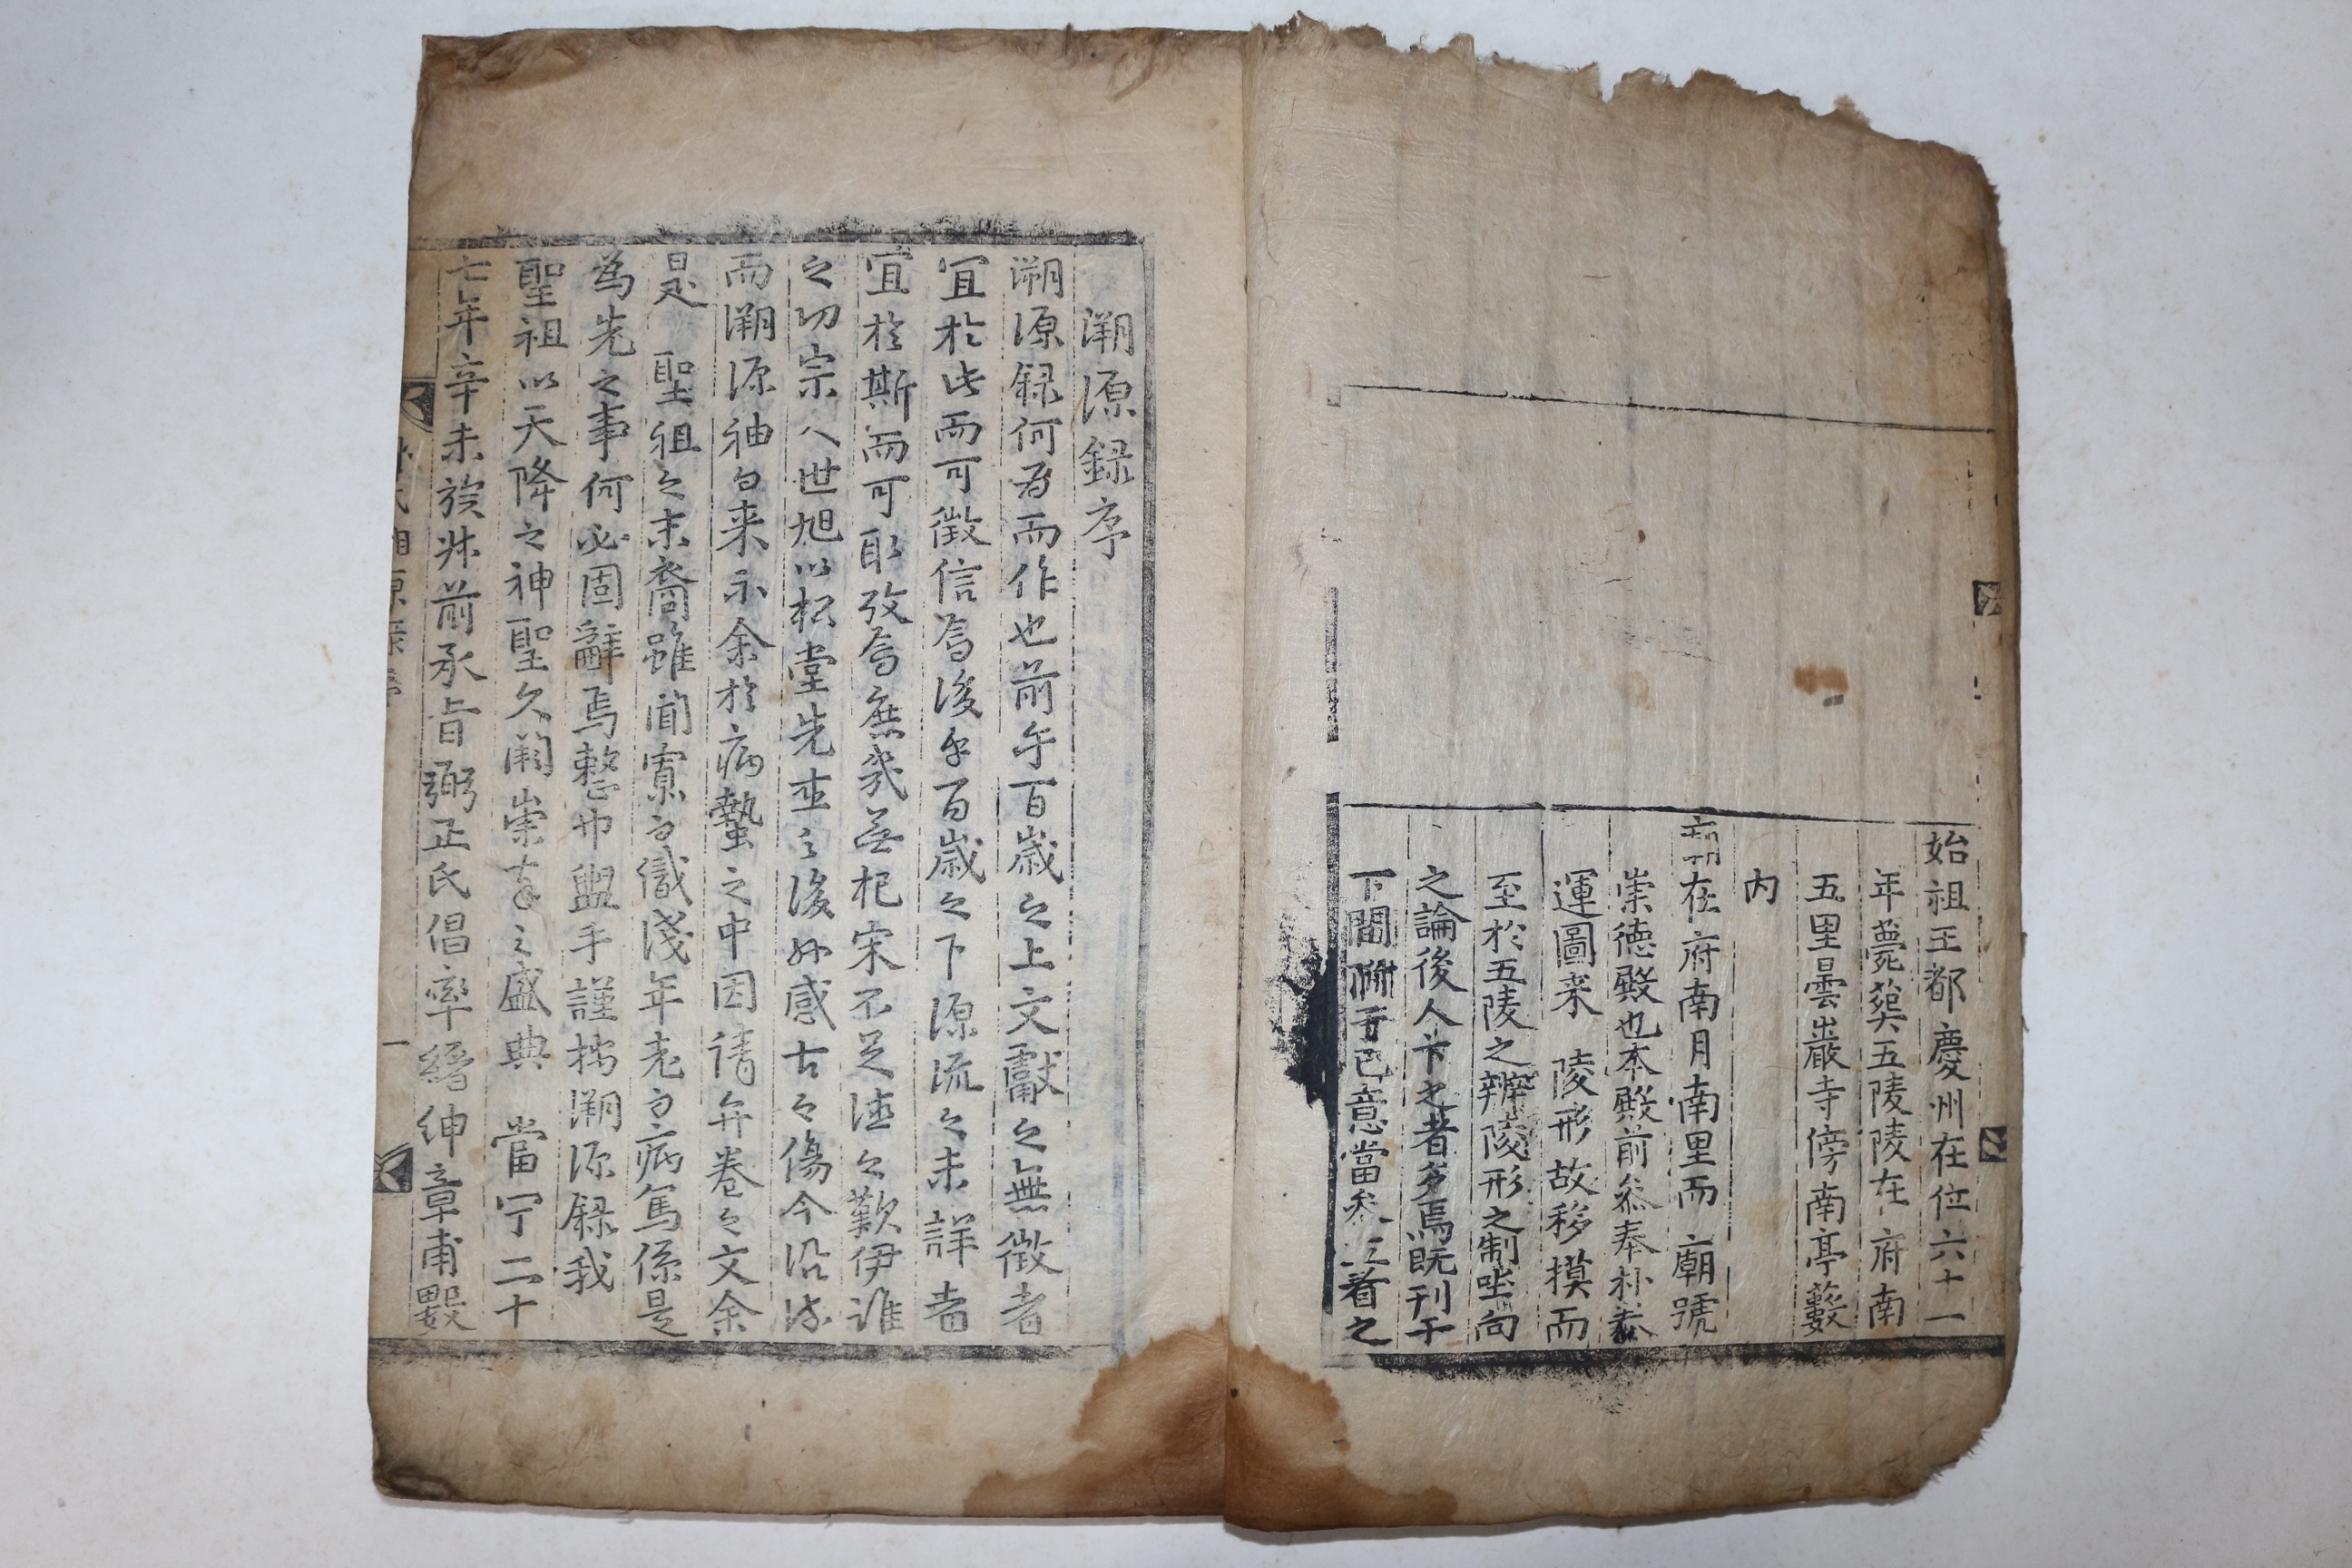 始祖王都慶州在位六十一
年薨葬五陵陵在府南
五里曇巖寺傍南亭藪
内
廟在府南月南里而廟號
崇德殿也本殿前叅奉朴
運圖来陵形故移摸而
至於五陵之辨陵形之制坐向
之論後人卞之者多焉既刊于
下間附于已意當叅 看之
溯源録序
溯源録何為而作也前乎百歳之上文獻之無徴者
宜於此而可徴信焉後乎百歳之下源流之未詳者
宜於斯而可取攷焉庶幾無杞宋不足徴之歎伊誰
之功宗八世旭以松堂先生之後孫感古之傷今沿流
而溯源袖自来示余於病蟄之中因請弁卷之文余
是聖祖之末裔雖聞寡为識淺年老为病篤係是
為先之事何必固辭焉整巾盥手謹按溯源録我
聖祖以天降之神聖久闕崇奉之盛典當宁二十
七年辛未族叔前承旨弼正氏倡率縉紳章甫
朴氏溯源录序
一